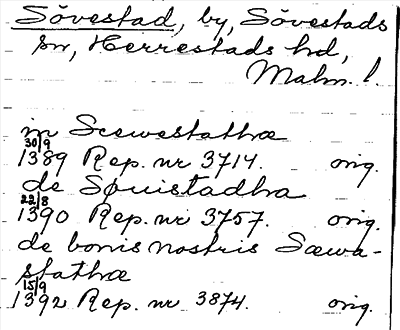 Sövestad, by, Sövestads
sn, Herrestads hd,
Malm. l.
in Sœwestathœ
30/9
1389 Rep. nr 3714. orig.
de Søuistadha
22/8
1390 Rep. nr 3757. orig.
de bonis nostris Sœwa-
stathœ
15/9
1392 Rep. nr 3874. orig.